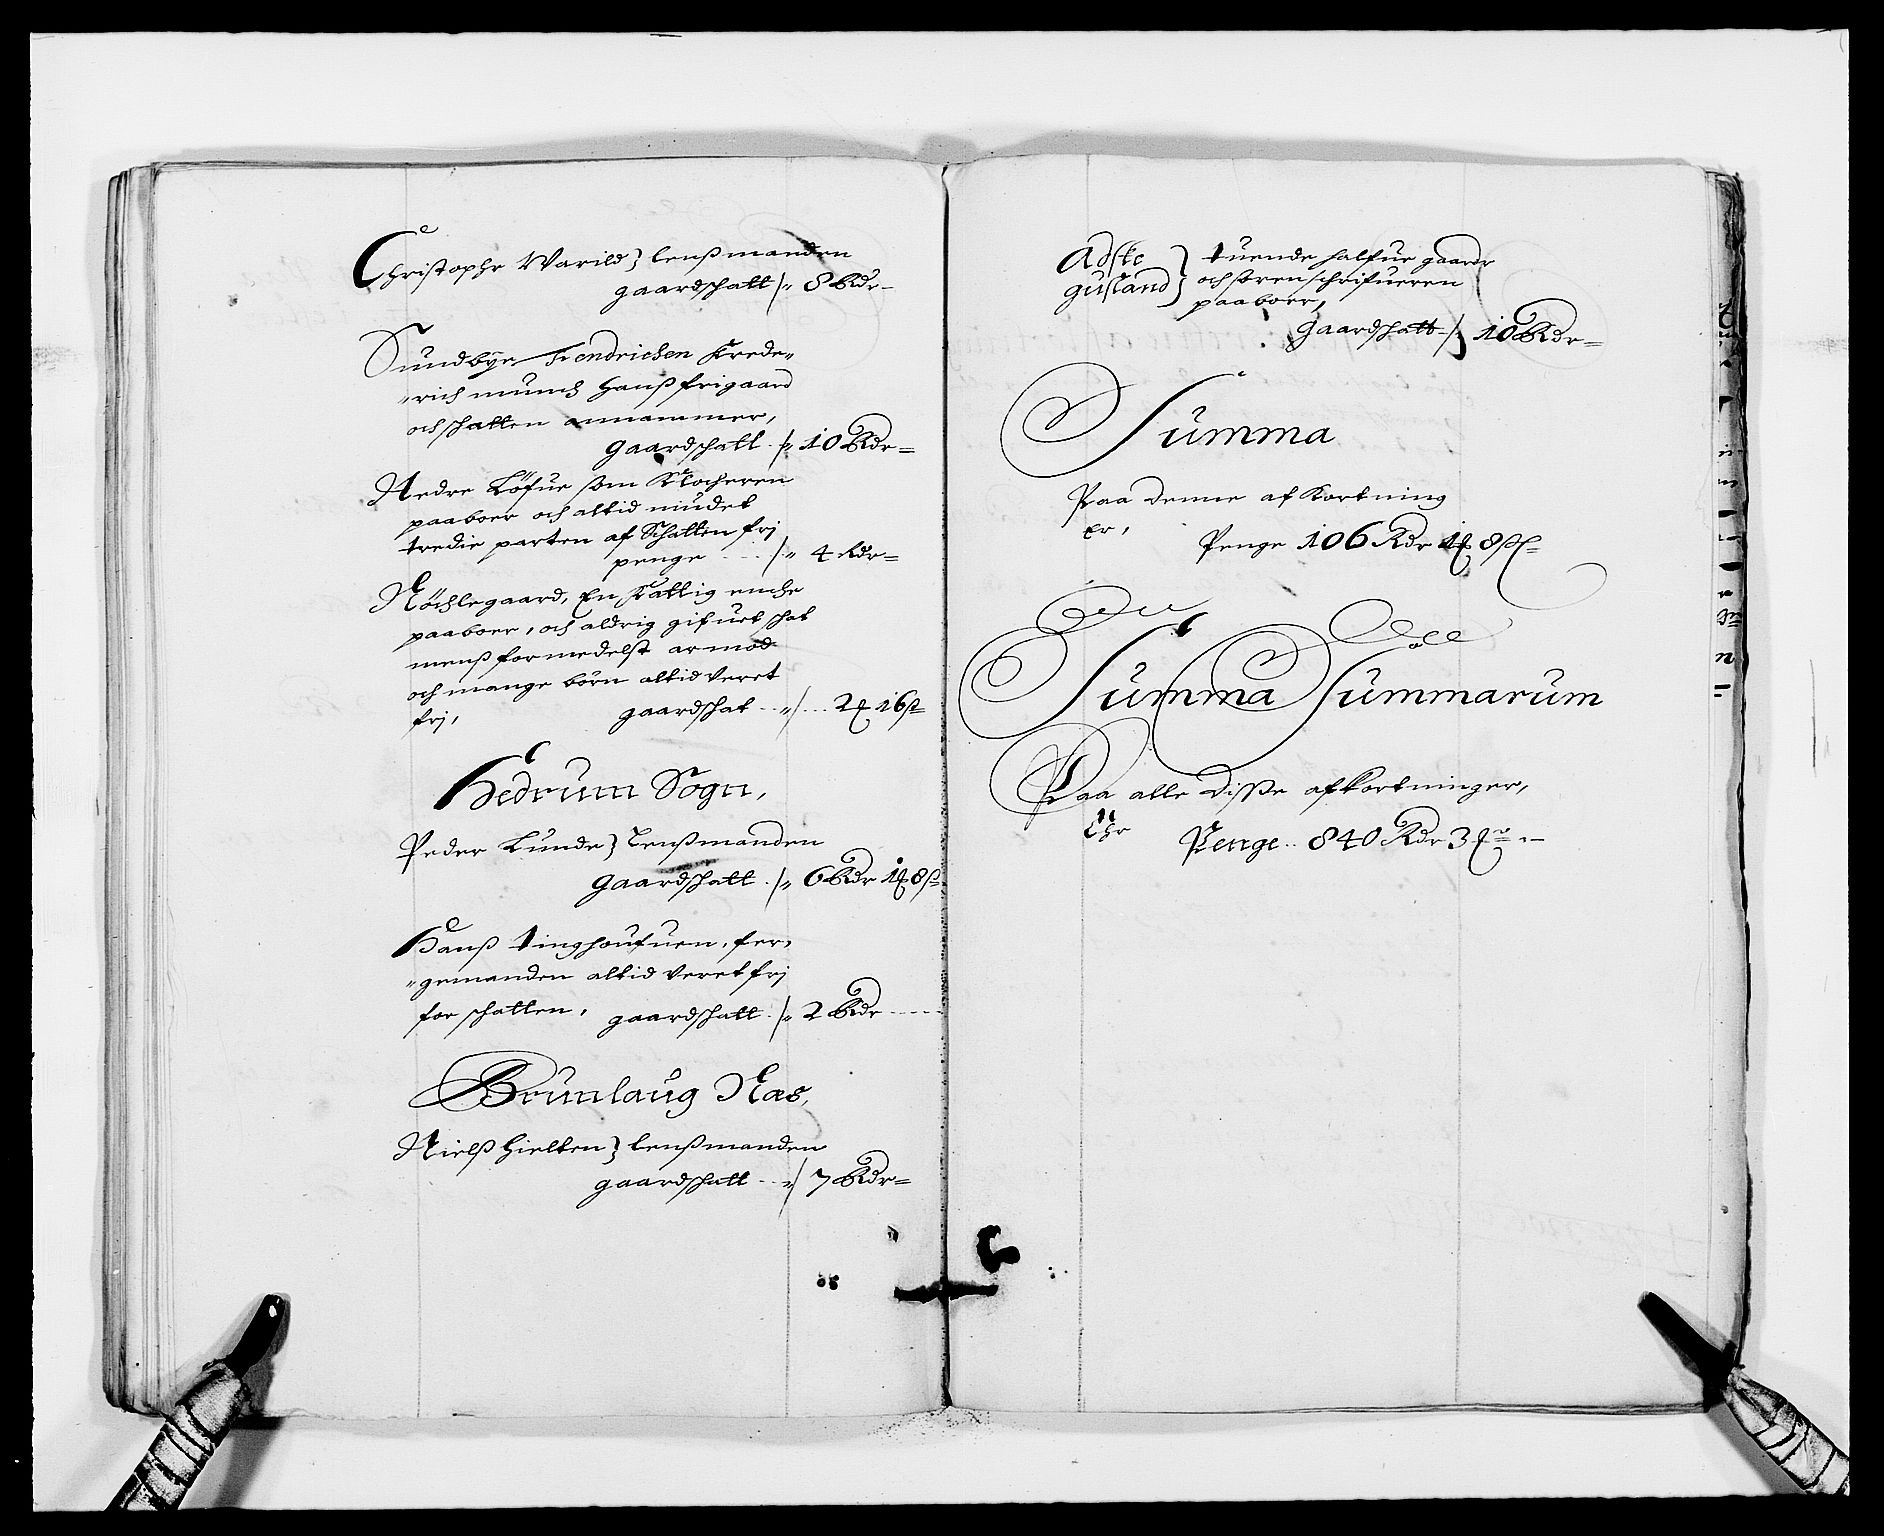 Christophr Warild} lenßmanden
gaardschatt /" 8 Rdr –
Sundbye Hendrichen Frede-
-rich munch Hanß frigaard
och schatten annammer,
gaardschatt /" 10 Rdr =
Nedre Løfue som Klocheren
paaboer och altid niudet
tredie parten af Schatten frj
penge /" 4 Rdr =
Nöchlegaard, En fattig enche
paaboer, och aldrig gifuet schat
menß formedelst armod
och mange börn altid veret
frj, gaardschat /" 2 16 ß
Hedrum Sogn,
Peder Lunde} lenßmanden
gaardschatt /" 6 Rdr 1 8 ß
Hanß tinghoufuen, fer-
-gemanden altid veret frj
for schatten, gaardschatt /" 2 Rdr
Brunlaug Næs,
Nielß Hielten} lenßmanden
gaardschatt /" 7 Rdr =
Adske } tuende halfue gaarde
gusland } och soren schrifueren
paaboer,
gaardschatt / 10 Rdr =
Summa
Paa denne afkortning
Er, Penge 106 Rdr 1 8 ß
Summa Summarum
Paa alle disse afkortninger,
Ehr Penge 840 Rdr 3